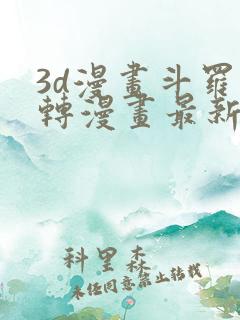 3d漫畫斗羅
轉漫畫最新
科里森
未經同意禁止转载